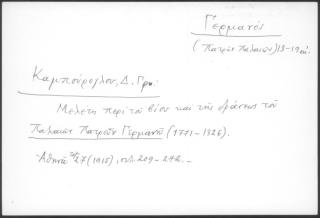 Γερμανός
(Πατρών Παλαιών) 18-19 αι.
Καμπούρογλου, Δ. Γρ.
Μελέτη περί του βίου και της δράσεως του
Παλαιών Πατρών Γερμανού (1771-1826).
Αθηνά 27 (1915), σελ. 209-272.-